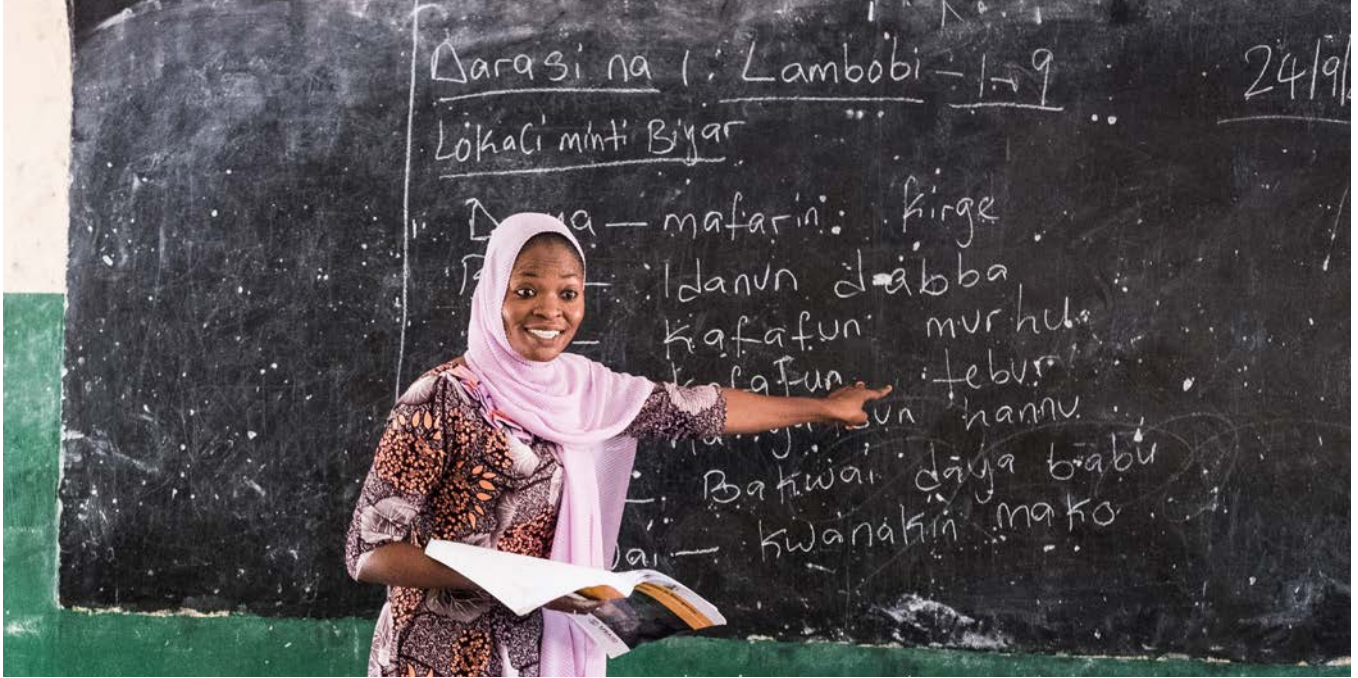 Darasi na 1. Lambobi - 1-9 24/9/
Lokaci minti Biyar
mafarin kirge
Idanun dabba
Kafafun murhu
Kafafun tebur
hannu
Bakwai daya babu
kwanakin mako